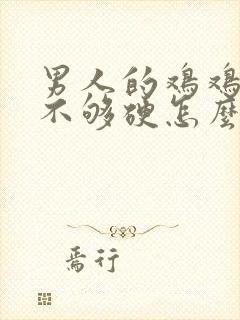 男人的鸡鸡
不够硬怎麽
焉行